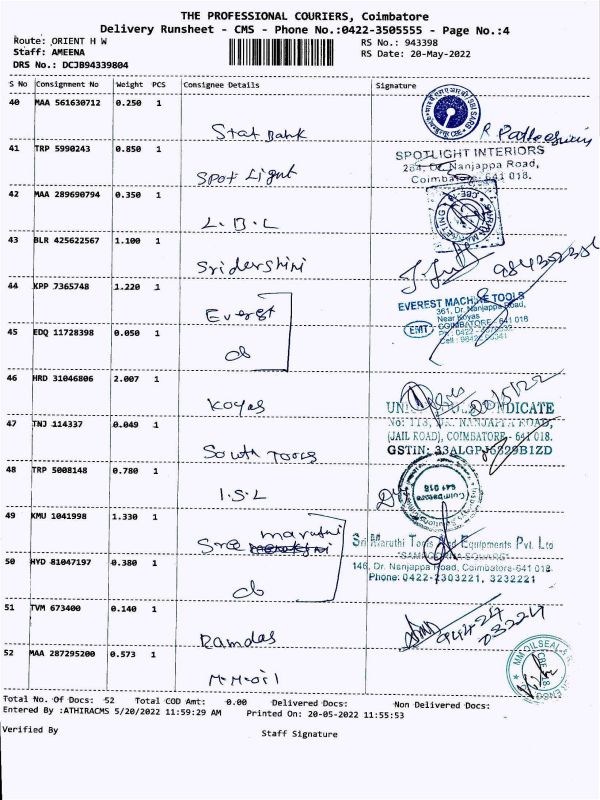 THE PROFESSIONAL COURIERS, Coimbatore
Delivery Runsheet - CMS - Phone No.:0422-3505555 - Page No.:4
Route: ORIENT H W
RS No.: 943398
Staff: AMEENA
RS Date: 20-May-2022
DRS No.: DCJB94339804
S No Consignment No Weight PCS Consignee Details Signature
40 MAA 561630712 0.250 1
Stat Bank
41 TRP 5990243 0.850 1
SPOTLIGHT INTERIORS
264, Dr. Nanjappa Road,
Coimbatore- 641 018.
Spot Light
42 MAA 289690794 0.350 1
L.B.L
43 BLR 425622567 1.100 1
Sridershini
44 KPP 7365748 1.220 1
Everest
EVEREST MACHINE TOOLS
361, Dr. Nanjappa Road,
Near Koyas
EMT COIMBATORE - 641 018
45 EDQ 11728398 0.050 1
do
46 HRD 31046806 2.007 1
Koyas
20/5/22
47 TNJ 114337 0.049 1
SYNDICATE
(JAIL ROAD), COIMBATORE - 641 018.
South Tools
48 TRP 5008148 0.780 1
Coimbatore
641 018
I.S.L
49 KMU 1041998 1.330 1
Sree maruthi
Sri Maruthi Tools And Equipments Pvt. Ltd
50 HYD 81047197 0.380 1
146, Dr. Nanjappa Road, Coimbatore-641 018
Phone: 0422-2303221, 3232221
do
51 TVM 673400 0.140 1
Ramdas
52 MAA 287295200 0.573 1
M.M.oil
Total No. Of Docs: 52 Total COD Amt: 0.00 Delivered Docs: Non Delivered Docs:
Entered By :ATHIRACMS 5/20/2022 11:59:29 AM Printed On: 20-05-2022 11:55:53
Verified By
Staff Signature